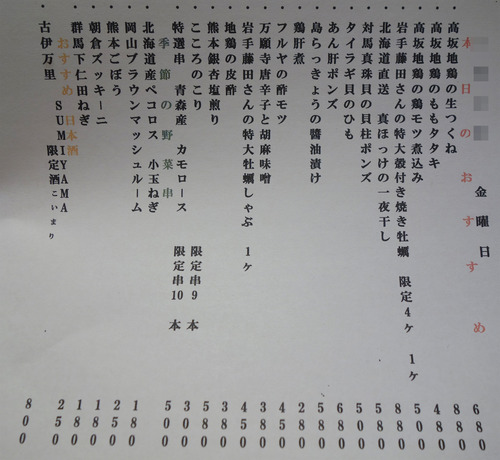 金曜日
本日のおすすめ
・高坂地鶏の生つくね
・高坂地鶏のももタタキ
・高坂地鶏の鶏モツ煮込み
・岩手藤田さんの特大殻付き焼き牡蠣 限定4ヶ 1ヶ
・北海道直送 真ほっけの一夜干し
・対馬真珠貝の貝柱ポンズ
・タイラギ貝のひも
・あん肝ポンズ
・島らっきょうの醤油漬け
・鶏肝煮
・フルヤの酢モツ
・万願寺唐辛子と胡麻味噌
・岩手藤田さんの特大牡蠣しゃぶ 1ヶ
・地鶏の皮酢
・熊本銀杏塩煎り
・こころのこり 限定串9本 300
・特選串 青森産 カモロース 限定串10本 500
季節の野菜串
・北海道産ペコロス 小玉ねぎ 180
・岡山ブラウンマッシュルーム 250
・熊本ごぼう 180
・朝倉ズッキーニ 180
・群馬下仁田ねぎ 250
おすすめ日本酒
SUMIYAMA限定酒こいまり
・古伊万里 800